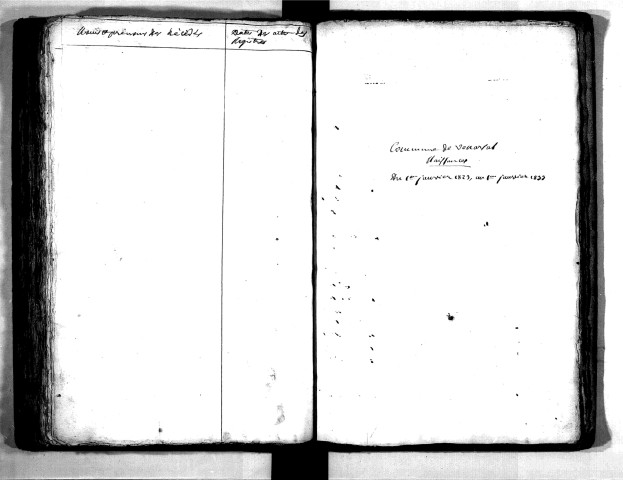 Noms et prénoms des décédés
Dates des actes des
Registres
Commune de
Naissances
Du 1er janvier 1823, au 1er janvier 1833